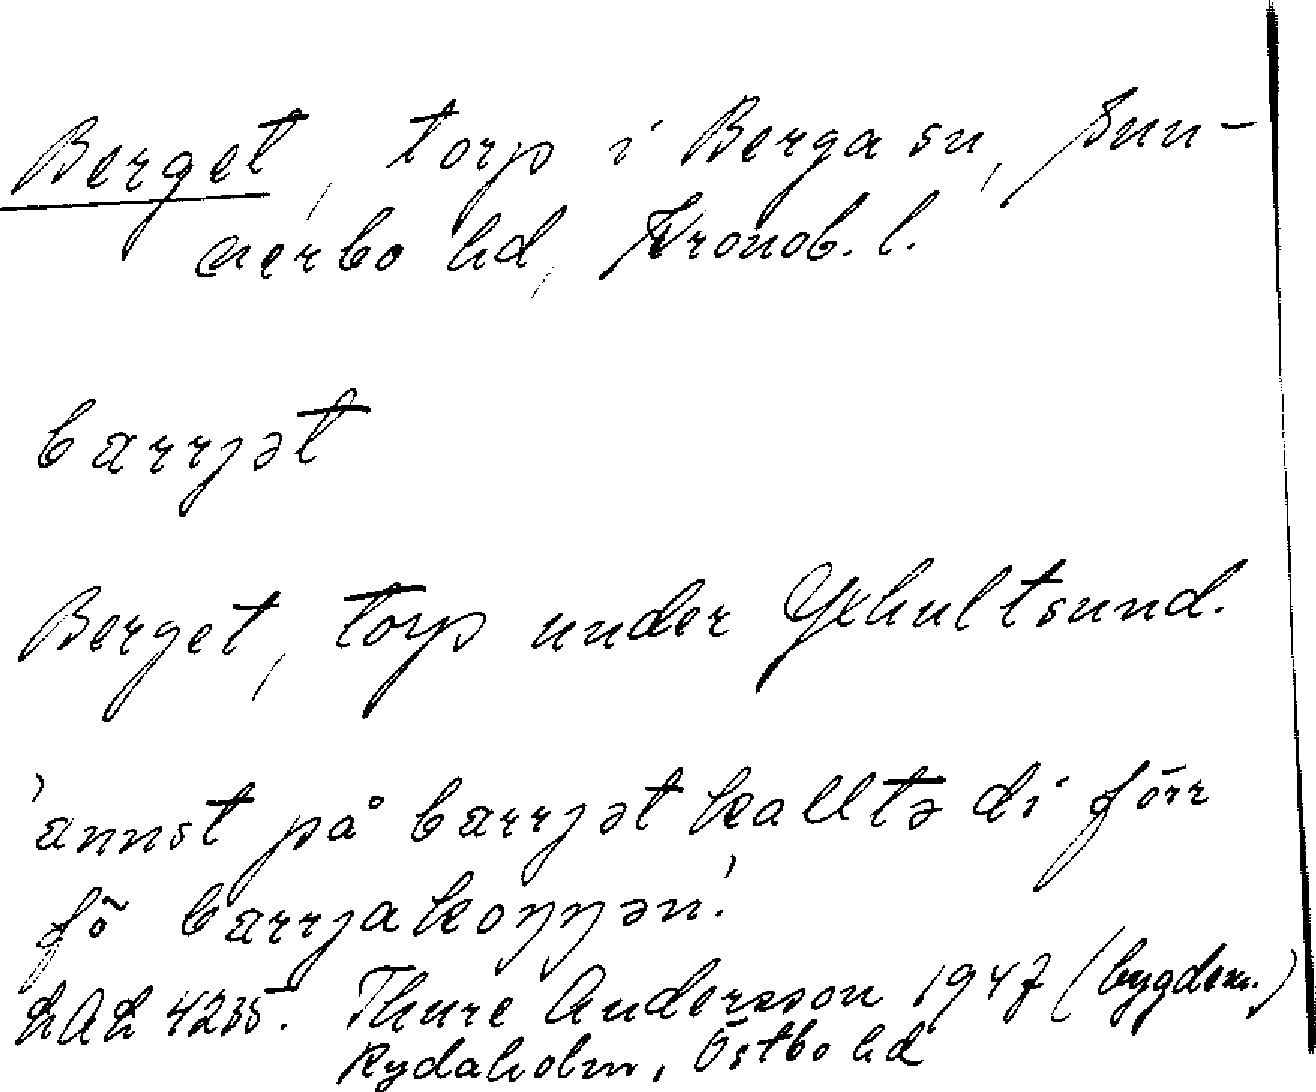 Berget, torp i Berga sn, Sun-
nerbo hd, Kronob. l.
barrjət
Berget, torp under Yxkultsund.
'annst på barrjət kalltə di förr
fö barrjakoŋŋən.'
LAL 4235. Thure Andersson 1947 (bygdem.)
Rydaholm, Östbo hd